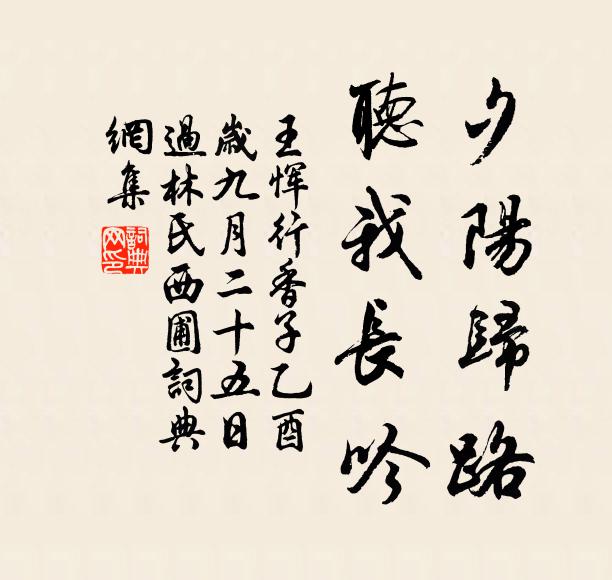 夕陽歸路
聽我長吟
王惲行香子乙酉
歲九月二十五日
過林氏西圃詞典
網集
詞典網印